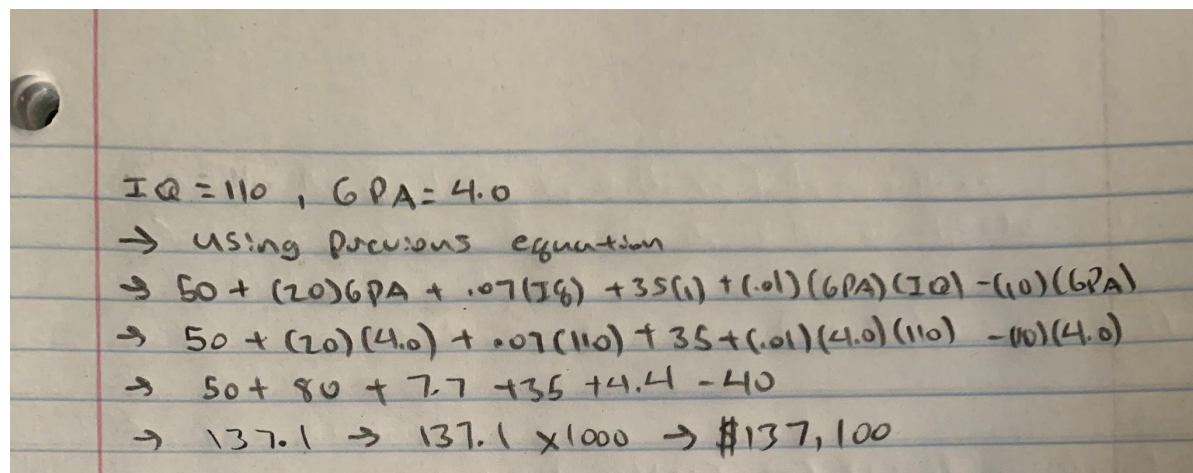 IQ = 110 , GPA = 4.0
→ using previous equation
→ 50 + (20)GPA + .07(IQ) + 35(1) + (.01)(GPA)(IQ) - (10)(GPA)
→ 50 + (20)(4.0) + .07(110) + 35 + (.01)(4.0)(110) - (10)(4.0)
→ 50 + 80 + 7.7 + 35 + 4.4 - 40
→ 137.1 → 137.1 x1000 → $137,100